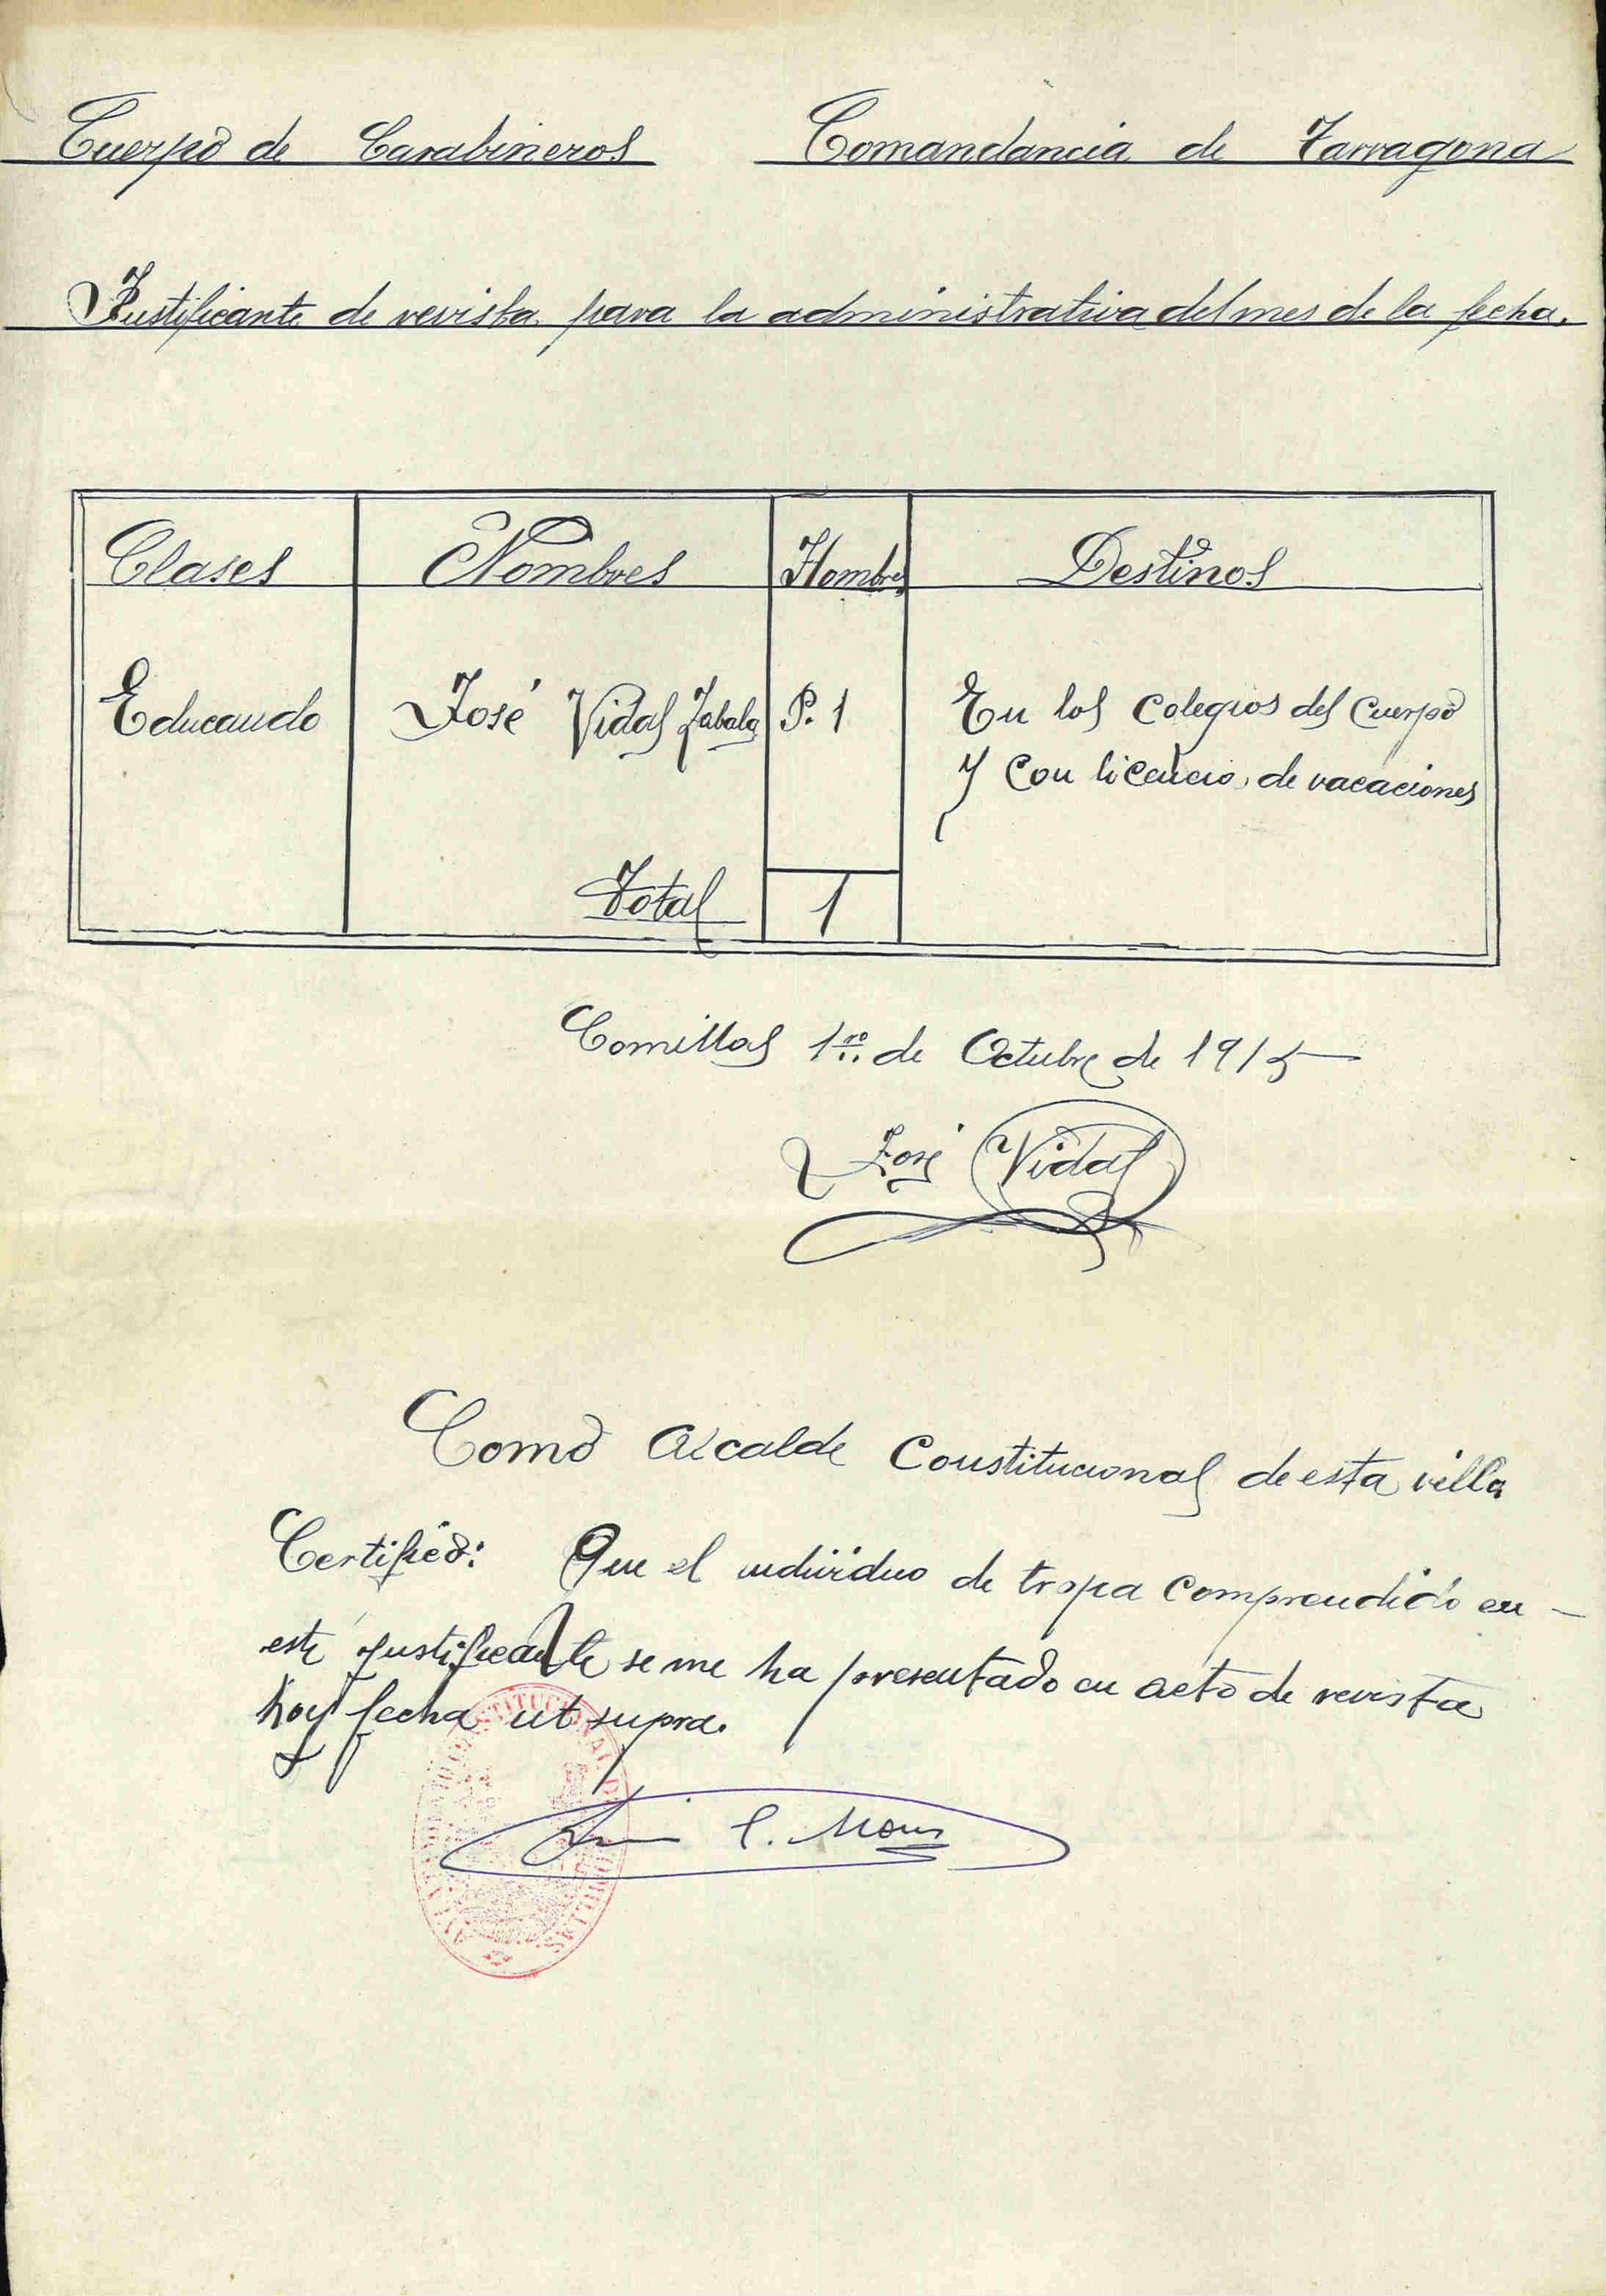 Cuerpo de Carabineros Comandancia de Tarragona
Justificante de revista para la administrativa del mes de la fecha.
Clases Nombres Hombres Destinos
Educando José Vidal Zabala P. 1 En los Colegios del Cuerpo
y con licencia de vacaciones
Total 1
Comillas 1ro de Octubre de 1915
José Vidal
Como Alcalde Constitucional de esta villa
Certifico: Que el individuo de tropa comprendido en
este justificante se me ha presentado en acto de revista
hoy fecha ut supra.